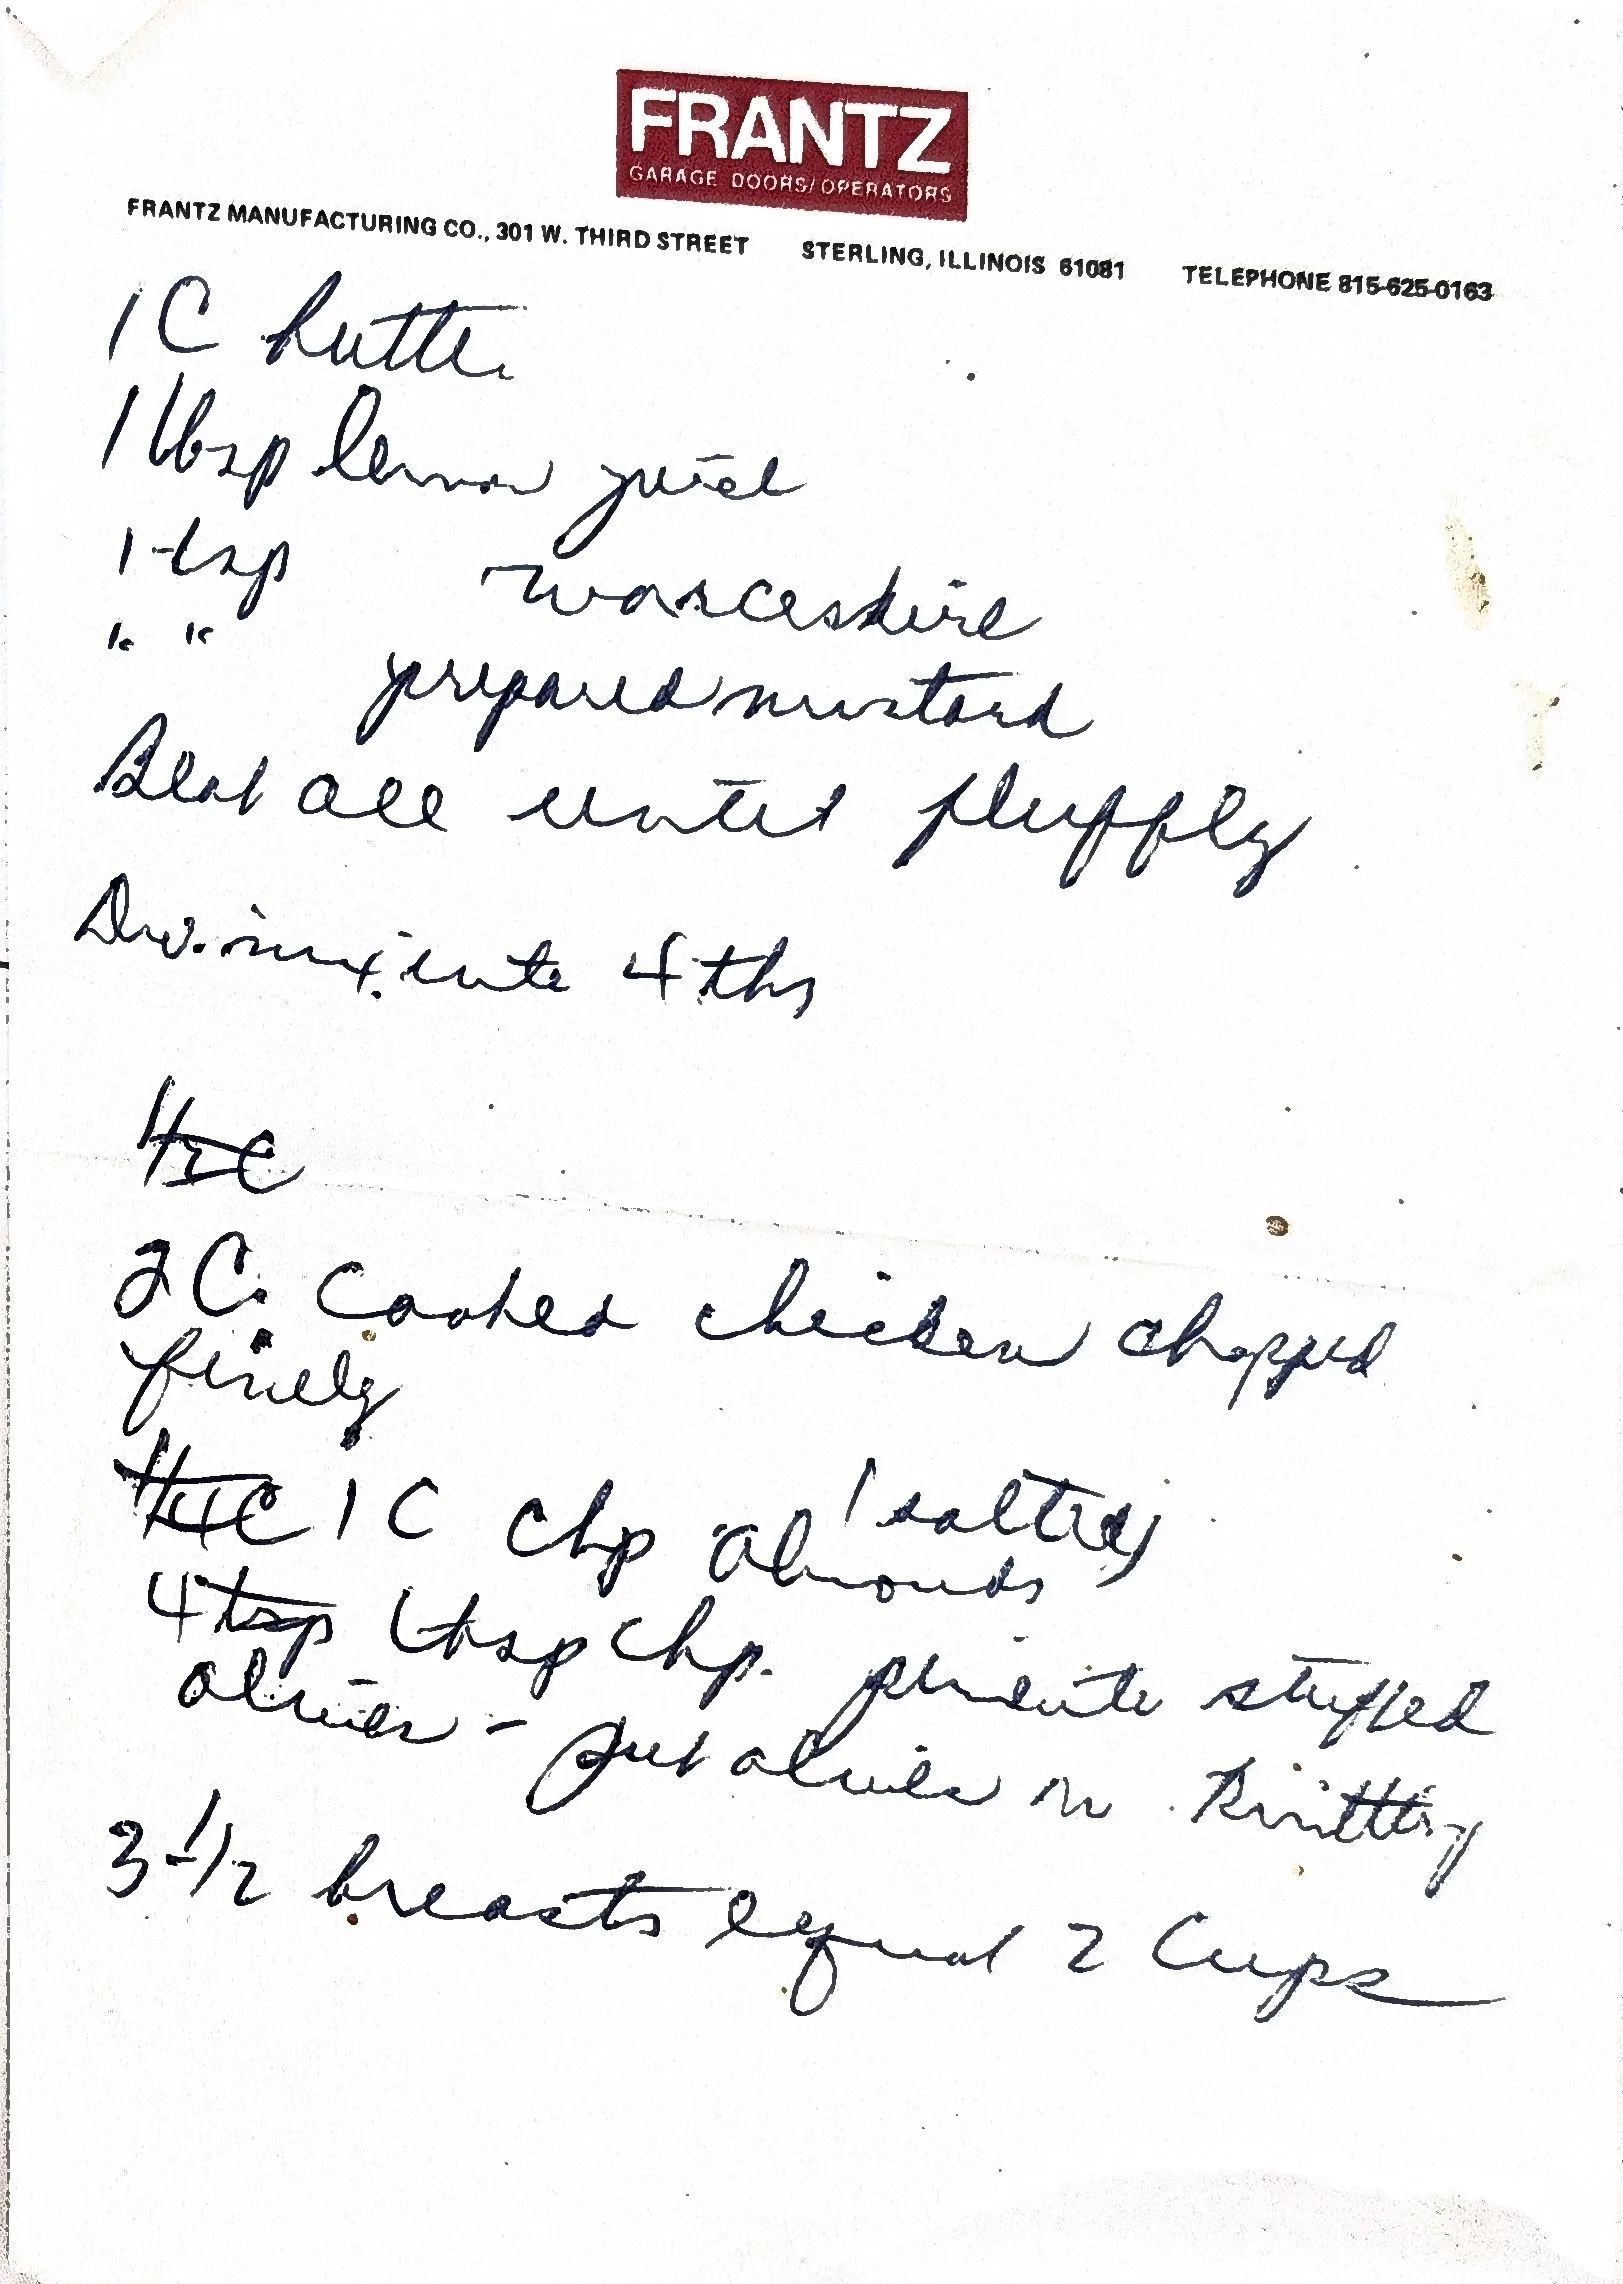 FRANTZ
GARAGE DOORS/OPERATORS
FRANTZ MANUFACTURING CO., 301 W. THIRD STREET STERLING, ILLINOIS 61081 TELEPHONE 815-625-0163
1 C butter
1 tbsp lemon juice
1 tsp worceshire
" " prepared mustard
Beat all until fluffly
Div. mix. into 4ths
1/2 C
2 C. Cooked chicken chopped
finely
1 C chp almonds (salted)
4 tsp tbsp chp. pimento stuffed
olives - put olives in
3 1/2 breasts equal 2 Cups